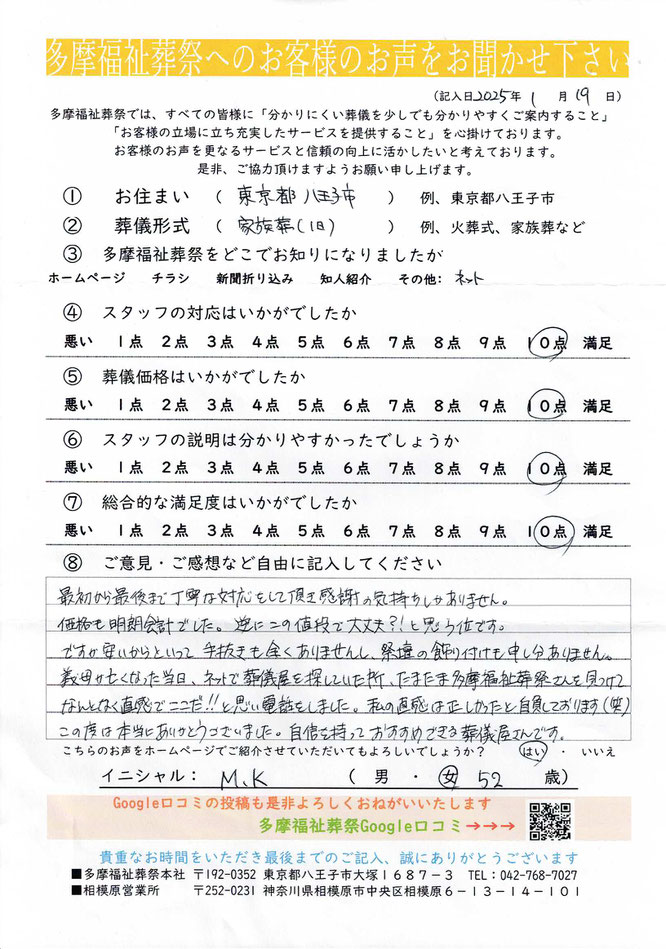 多摩福祉葬祭へのお客様のお声をお聞かせ下さい
(記入日2025年 1 月 19 日)
多摩福祉葬祭では、すべての皆様に「分かりにくい葬儀を少しでも分かりやすくご案内すること」
「お客様の立場に立ち充実したサービスを提供すること」を心掛けております。
お客様のお声を更なるサービスと信頼の向上に活かしたいと考えております。
是非、ご協力頂けますようお願い申し上げます。
① お住まい ( 東京都 八王子市 ) 例、東京都八王子市
② 葬儀形式 ( 家族葬(1日) ) 例、火葬式、家族葬など
③ 多摩福祉葬祭をどこでお知りになりましたか
ホームページ チラシ 新聞折り込み 知人紹介 その他: ネット
④ スタッフの対応はいかがでしたか
悪い 1点 2点 3点 4点 5点 6点 7点 8点 9点 10点 満足
⑤ 葬儀価格はいかがでしたか
悪い 1点 2点 3点 4点 5点 6点 7点 8点 9点 10点 満足
⑥ スタッフの説明は分かりやすかったでしょうか
悪い 1点 2点 3点 4点 5点 6点 7点 8点 9点 10点 満足
⑦ 総合的な満足度はいかがでしたか
悪い 1点 2点 3点 4点 5点 6点 7点 8点 9点 10点 満足
⑧ ご意見・ご感想など自由に記入してください
最初から最後まで丁寧な対応をして頂き感謝の気持ちしかありません。
価格も明朗会計でした。逆にこの値段で大丈夫?!と思う位です。
ですが安いからといって手抜きも全くありませんし、祭壇の飾り付けも申し分ありません。
義母が亡くなった当日、ネットで葬儀屋を探していた所、たまたま多摩福祉葬祭さんを見つけて
なんとなく直感でここだ!!と思い電話をしました。私の直感は正しかったと自負しております(笑)
この度は本当にありがとうございました。自信を持っておすすめできる葬儀屋さんです。
こちらのお声をホームページでご紹介させていただいてもよろしいでしょうか? はい ・ いいえ
イニシャル: M.K ( 男 ・ 女 52 歳)
Google口コミの投稿も是非よろしくおねがいいたします
多摩福祉葬祭Google口コミ→→→
貴重なお時間をいただき最後までのご記入、誠にありがとうございます
■多摩福祉葬祭本社 〒192-0352 東京都八王子市大塚1687-3 TEL:042-768-7027
■相模原営業所 〒252-0231 神奈川県相模原市中央区相模原6-13-14-101